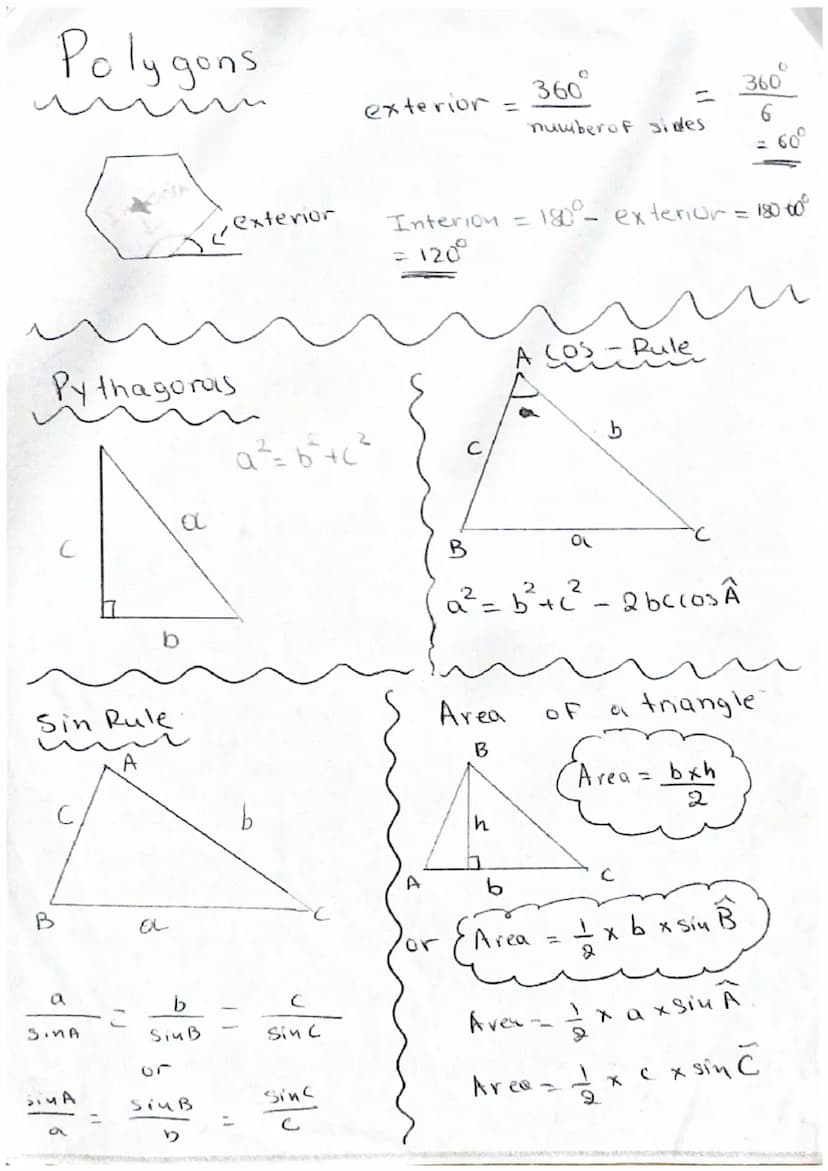 Polygons
exterior = 360° / number of sides = 360° / 6
= 60°
exterior
Interion = 180° - exterior = 180-60°
= 120°
Pythagoras
a² = b² + c²
c
a
b
Cos - Rule
A
a
c
b
B
a
C
a² = b² + c² - 2bc cos Â
Sin Rule
A
C
b
B
a
C
a / sinA = b / sinB = c / sin C
or
sinA / a = sinB / b = sinC / C
Area of a triangle
B
h
A
b
C
Area = b x h / 2
or
Area = 1/2 x b x sin B̂
Area = 1/2 x a x sin Â
Area = 1/2 x c x sin C̄